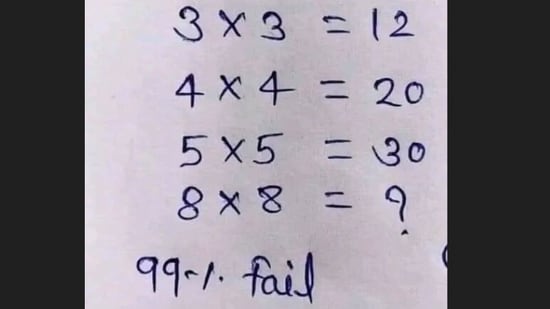 3 × 3 = 12
4 × 4 = 20
5 × 5 = 30
8 × 8 = ?
99% fail